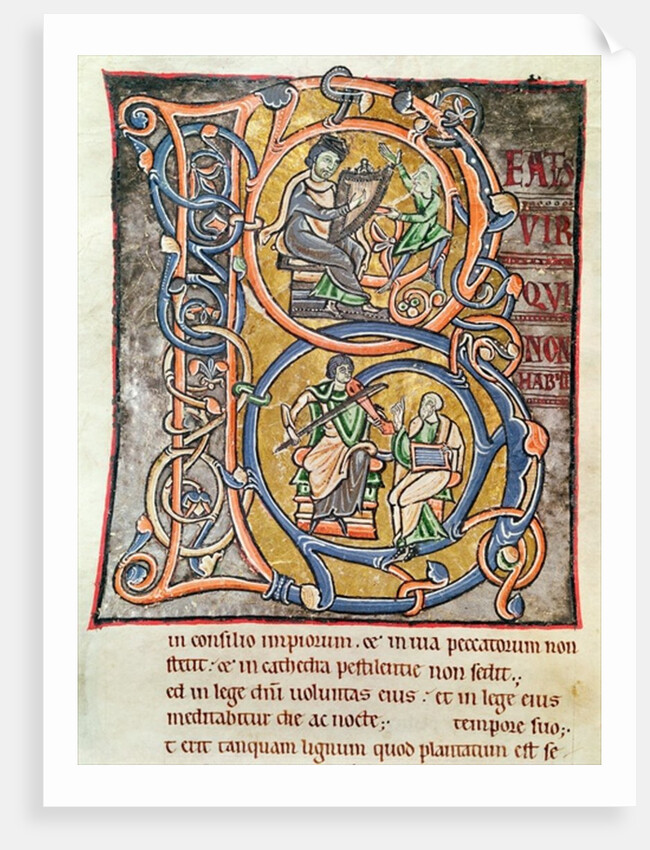 B
EATS
VIR
QVI
NON
HABIIT
in consilio impiorum. & in uia peccatorum non
stetit: & in cathedra pestilentie non sedit.;
ed in lege dñi uoluntas eius: et in lege eius
meditabitur die ac nocte;. tempore suo;.
t erit tanquam lignum quod plantatum est se